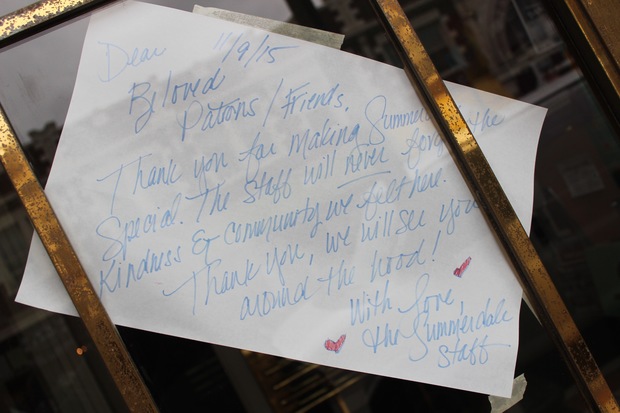 Dear 11/9/15
Beloved
Patrons/Friends,
Thank you for making Summerd
Special. The Staff will never forge the
Kindness & Community we felt here.
Thank you, we will see you
around the hood!
With love,
the Summerdale
Staff